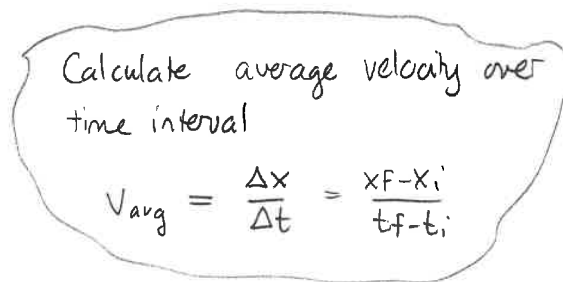 Calculate average velocity over
time interval
Vavg = Δx/Δt = xf-xi/tf-ti